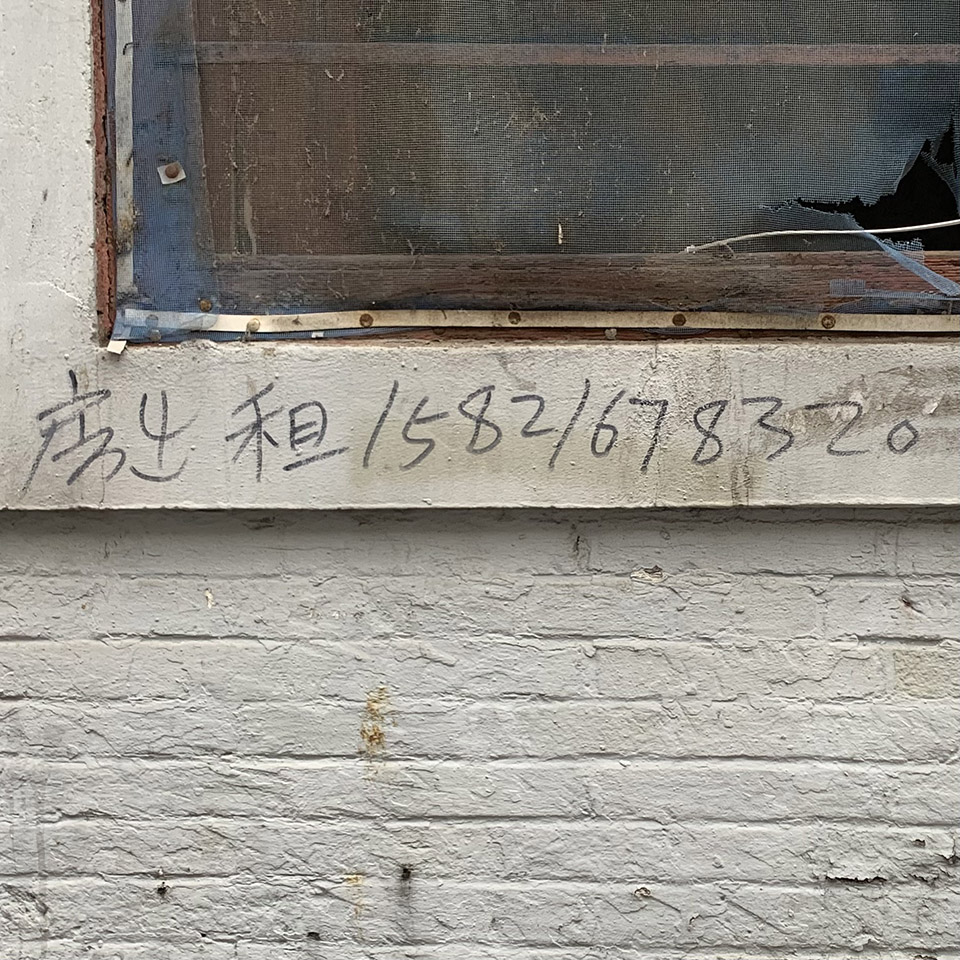 房出租15821678320